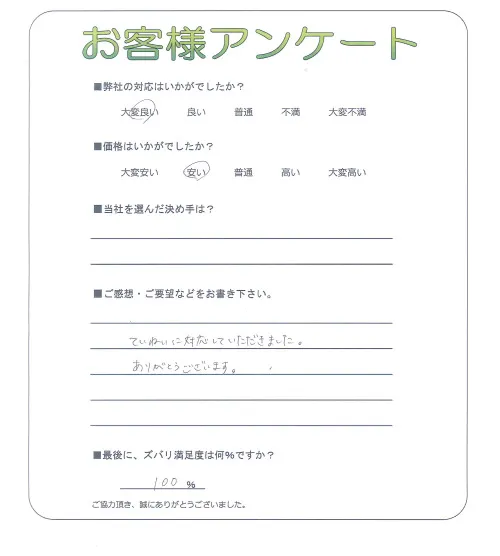 お客様アンケート
■弊社の対応はいかがでしたか？
大変良い 良い 普通 不満 大変不満
■価格はいかがでしたか？
大変安い 安い 普通 高い 大変高い
■当社を選んだ決め手は？
■ご感想・ご要望などをお書き下さい。
ていねいに対応していただきました。
ありがとうございます。
■最後に、ズバリ満足度は何%ですか？
100 %
ご協力頂き、誠にありがとうございました。